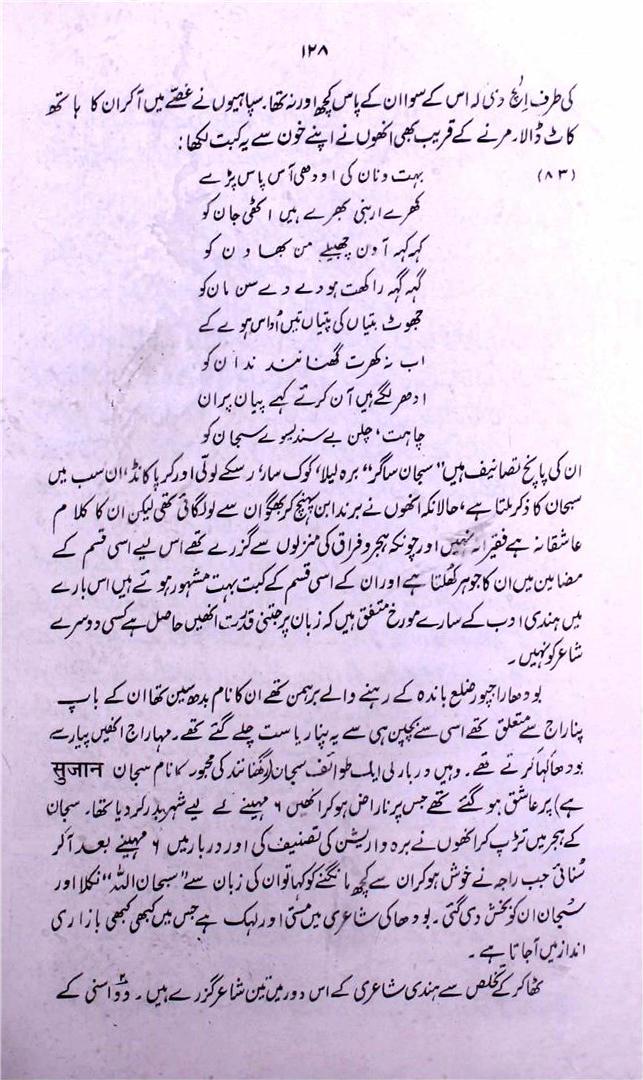 ۱۲۸
کی طرف اپنچ دی لہ اس کے سوا ان کے پاس کچھ اور نہ تھا۔ سپاہیوں نے غصّے میں آکر ان کا ہاتھ
کاٹ ڈالا۔ مرنے کے قریب بھی انھوں نے اپنے خون سے یہ کبت لکھا:
(۸۳) بہت دنان کی اودھی آس پاس پڑے
کھرے اربنی بھرے ہیں اٹھی جان کو
کہہ کہہ آدن چھبیلے من بھادن کو
گہہ گہہ راکھت ہودے دے سن مان کو
جھوٹ بتیاں کی پتیاں تیں اُداس ہوے کے
اب نہ گھرت گھنانند ندان کو
ادھر لگے ہیں آن کرتے کہے پیان پران
چاہت، چلن بے سندیوے سجان کو
ان کی پانچ تصانیف ہیں "سجان ساگر" برہ لیلا، کوک سار، رسکے لوئی اور کرپا کانڈ، ان سب میں
سبحان کا ذکر ملتا ہے، حالانکہ انھوں نے برندابن پہنچ کر بھگوان سے لو لگائی تھی لیکن ان کا کلام
عاشقانہ ہے فقیرانہ نہیں اور چونکہ ہجر و فراق کی منزلوں سے گزرے تھے اس لیے اسی قسم کے
مضامین میں ان کا جوہر کھلتا ہے اور ان کے اسی قسم کے کبت بہت مشہور ہوتے ہیں اس بارے
میں ہندی ادب کے سارے مورخ متفق ہیں کہ زبان پر جتنی قدرت انھیں حاصل ہے کسی دوسرے
شاعر کو نہیں۔
بودھا راجپور ضلع باندہ کے رہنے والے برہمن تھے ان کا نام بدھ سین تھا ان کے باپ
پنا راج سے متعلق تھے اسی سے بچپن ہی سے یہ پنا ریاست چلے گئے تھے۔ مہاراج انھیں پیار سے
بودھا کہا کرتے تھے۔ وہیں دربار کی ایک طوائف سبحان (گھنانند کی محبوبہ کا نام سجان सुजान
ہے) پر عاشق ہو گئے تھے جس پر ناراض ہو کر انھیں ۶ مہینے کے لیے شہر بدر کر دیا تھا۔ سجان
کے ہجر میں تڑپ کر انھوں نے برہ واریشن کی تصنیف کی اور دربار میں ۶ مہینے بعد آکر
سُنائی جب راجہ نے خوش ہو کر ان سے کچھ مانگنے کو کہا تو ان کی زبان سے "سبحان اللہ" نکلا اور
سُبحان ان کو بخش دی گئی۔ بودھا کی شاعری میں مستی اور لہک ہے جس میں کبھی کبھی بازاری
انداز میں آجاتا ہے۔
ٹھاکر کے تخلص سے ہندی شاعری کے اس دور میں تین شاعر گزرے ہیں۔ دو اسنی کے